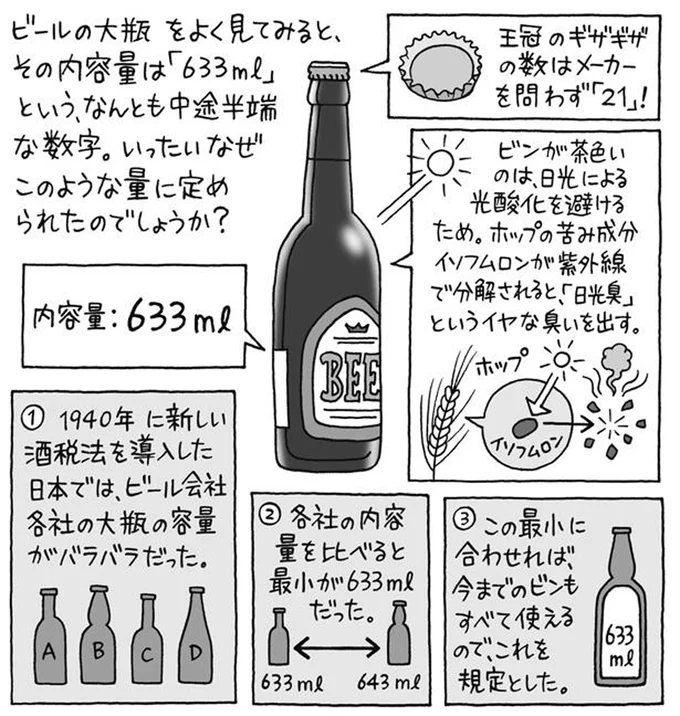 ビールの大瓶 をよく見てみると、
その内容量は「633ml」
という、なんとも中途半端
な数字。いったいなぜ
このような量に定め
られたのでしょうか?
王冠のギザギザ
の数はメーカー
を問わず「21」!
ビンが茶色い
のは、日光による
光酸化を避ける
ため。ホップの苦み成分
イソフムロンが紫外線
で分解されると、「日光臭」
というイヤな臭いを出す。
ホップ
イソフムロン
内容量:633ml
BEE
① 1940年 に新しい
酒税法を導入した
日本では、ビール会社
各社の大瓶の容量
がバラバラだった。
A B C D
② 各社の内容
量を比べると
最小が633ml
だった。
633ml 643ml
③ この最小に
合わせれば、
今までのビンも
すべて使える
ので、これを
規定とした。
633
ml